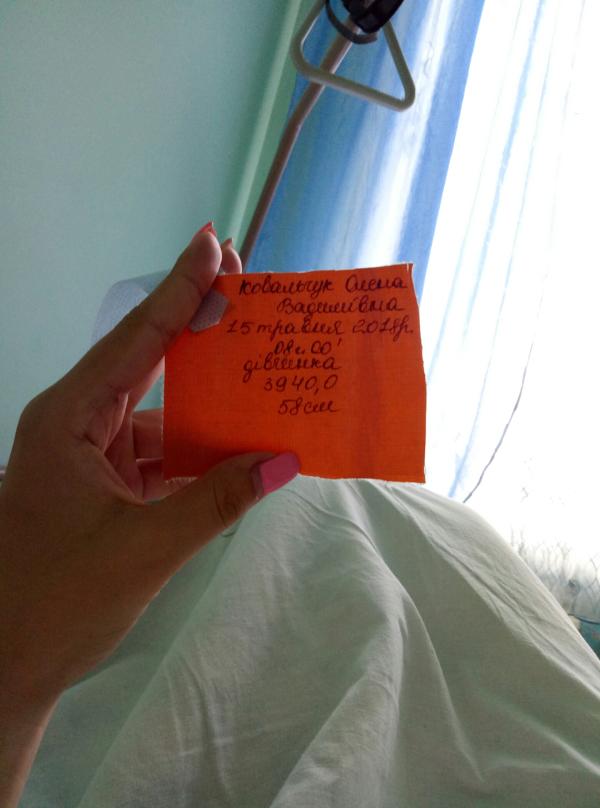 Ковальчук Олена
Вадимівна
15 травня 2018р.
08ч. 00'
дівчинка
3940,0
58см